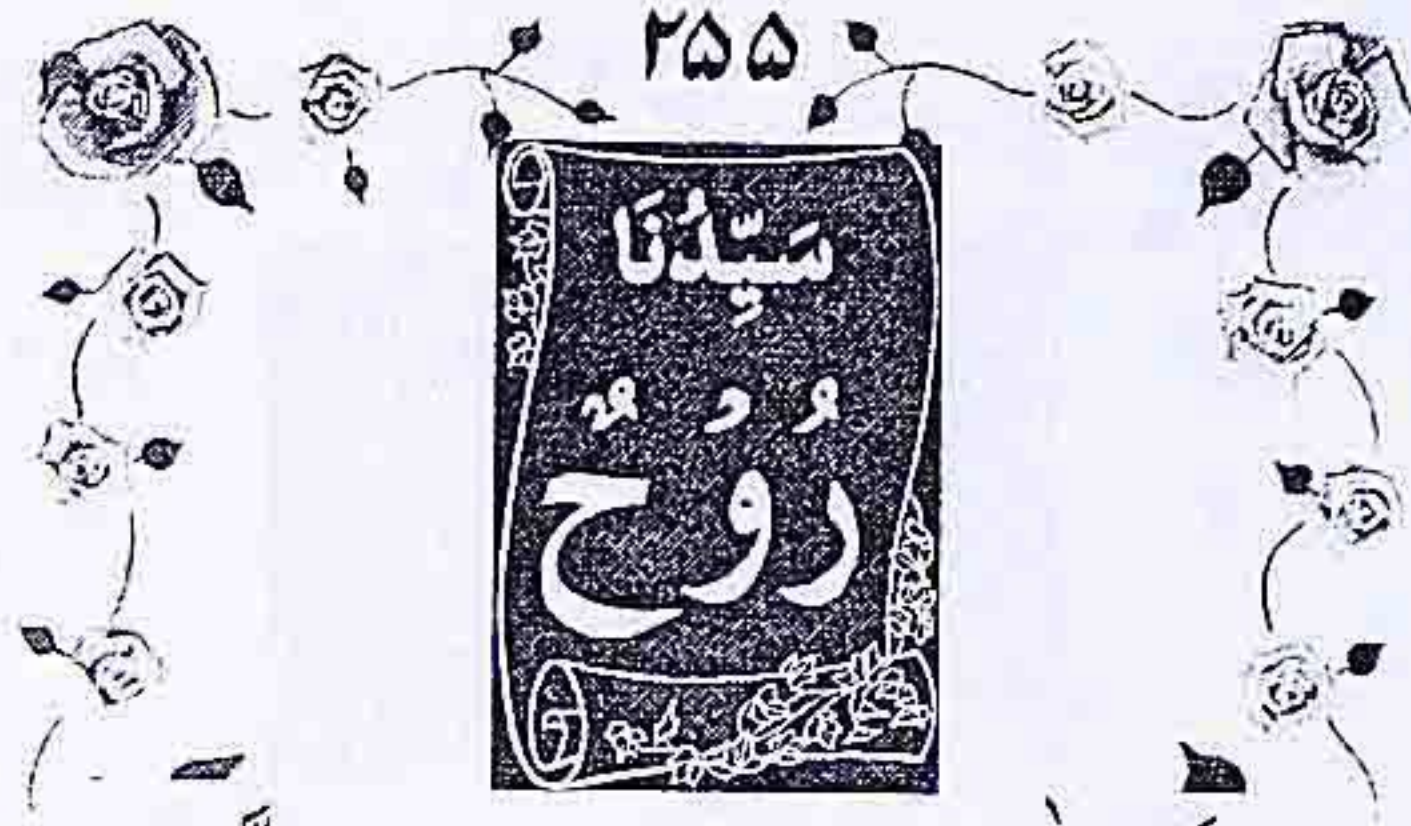 ۲۵۵
سَيِّدُنَا
رُوْحٌ